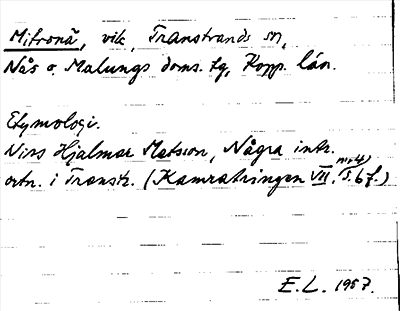 Mifronå, vik, Transtrands sn,
Nås o. Malungs doms. tg, Kopp. län.
Etymologi.
Nirs Hjalmar Matsson, Några intr.
ortn. i Transtr. (Kamratringen VII, nr 4, s. 6 f.)
E. L. 1957.